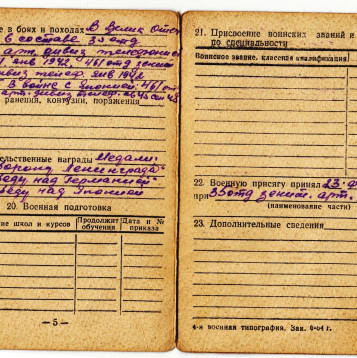 е в боях и походах В Велик Отеч
в составе 35 отд
арт. дивиз телефонист
янв 1942. 461 отд зенит
дивиз телеф. янв 1942
В войне с Японией 461 от
арт. дивиз телеф.
ранения, контузии, поражения
ельственные награды Медали
оборону Ленинграда
беду над Германией
беду над Японией
20. Военная подготовка
ие школ и курсов
Продолжит обучения
Дата и № приказа
— 5 —
21. Присвоение воинских званий и
по специальности
Воинское звание, классная квалификация
22. Военную присягу принял 23 ф
при 35 отд зенит. арт.
(наименование части)
23. Дополнительные сведения
4-я военная типография. Зак. 6-64 г.